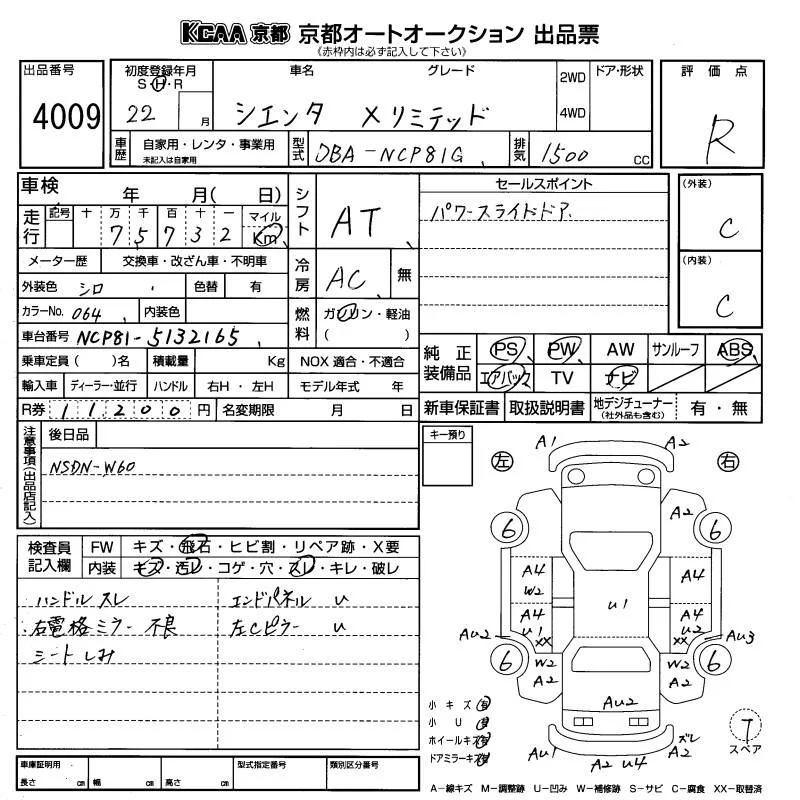 KCAA 京都 京都オートオークション 出品票
《赤枠内は必ず記入して下さい》
出品番号
4009
初度登録年月
S・H・R
22 月
車名
グレード
シエンタ Xリミテッド
2WD
4WD
ドア・形状
評価点
R
車歴
自家用・レンタ・事業用
未記入は自家用
型式
DBA-NCP81G
排気
1500 CC
車検 年 月( 日)
走行
記号 十 万 千 百 十 一 マイル
7 5 7 3 2 Km
メーター歴 交換車・改ざん車・不明車
外装色 シロ 色替 有
カラーNo. 064 内装色
車台番号 NCP81-5132165
乗車定員( )名 積載量 Kg
輸入車 ディーラー・並行 ハンドル 右H・左H
R券 11200円 名変期限 月 日
シフト
AT
冷房
AC 無
燃料
ガソリン・軽油
( )
NOX 適合・不適合
モデル年式 年
セールスポイント
パワースライドドア
(外装)
C
(内装)
C
純正装備品
PS PW AW サンルーフ ABS
エアバック TV ナビ
新車保証書 取扱説明書 地デジチューナー
(社外品も含む)
有・無
注意事項(出品店記入)
後日品
NSDN-W60
検査員記入欄
FW キズ・飛石・ヒビ割・リペア跡・X要
内装 キズ・汚レ・コゲ・穴・スレ・キレ・破レ
ハンドル スレ
右電格ミラー 不良
シート しみ
エンドパネル U
左Cピラー U
キー預り
左
右
A1
A2
A2
6
6
A4
W2
A4
U1
A4
U1
XX
A4
U2
XX
AU2
AU3
6
6
W2
A2
W2
A2
AU2
AU1
A2 U4
ズレ
A2
小キズ
小U
ホイールキズ
ドアミラーキズ
T
スペア
車庫証明用
長さ cm 幅 cm 高さ cm
型式指定番号
類別区分番号
A-線キズ M-調整跡 U-凹み W-補修跡 S-サビ C-腐食 XX-取替済